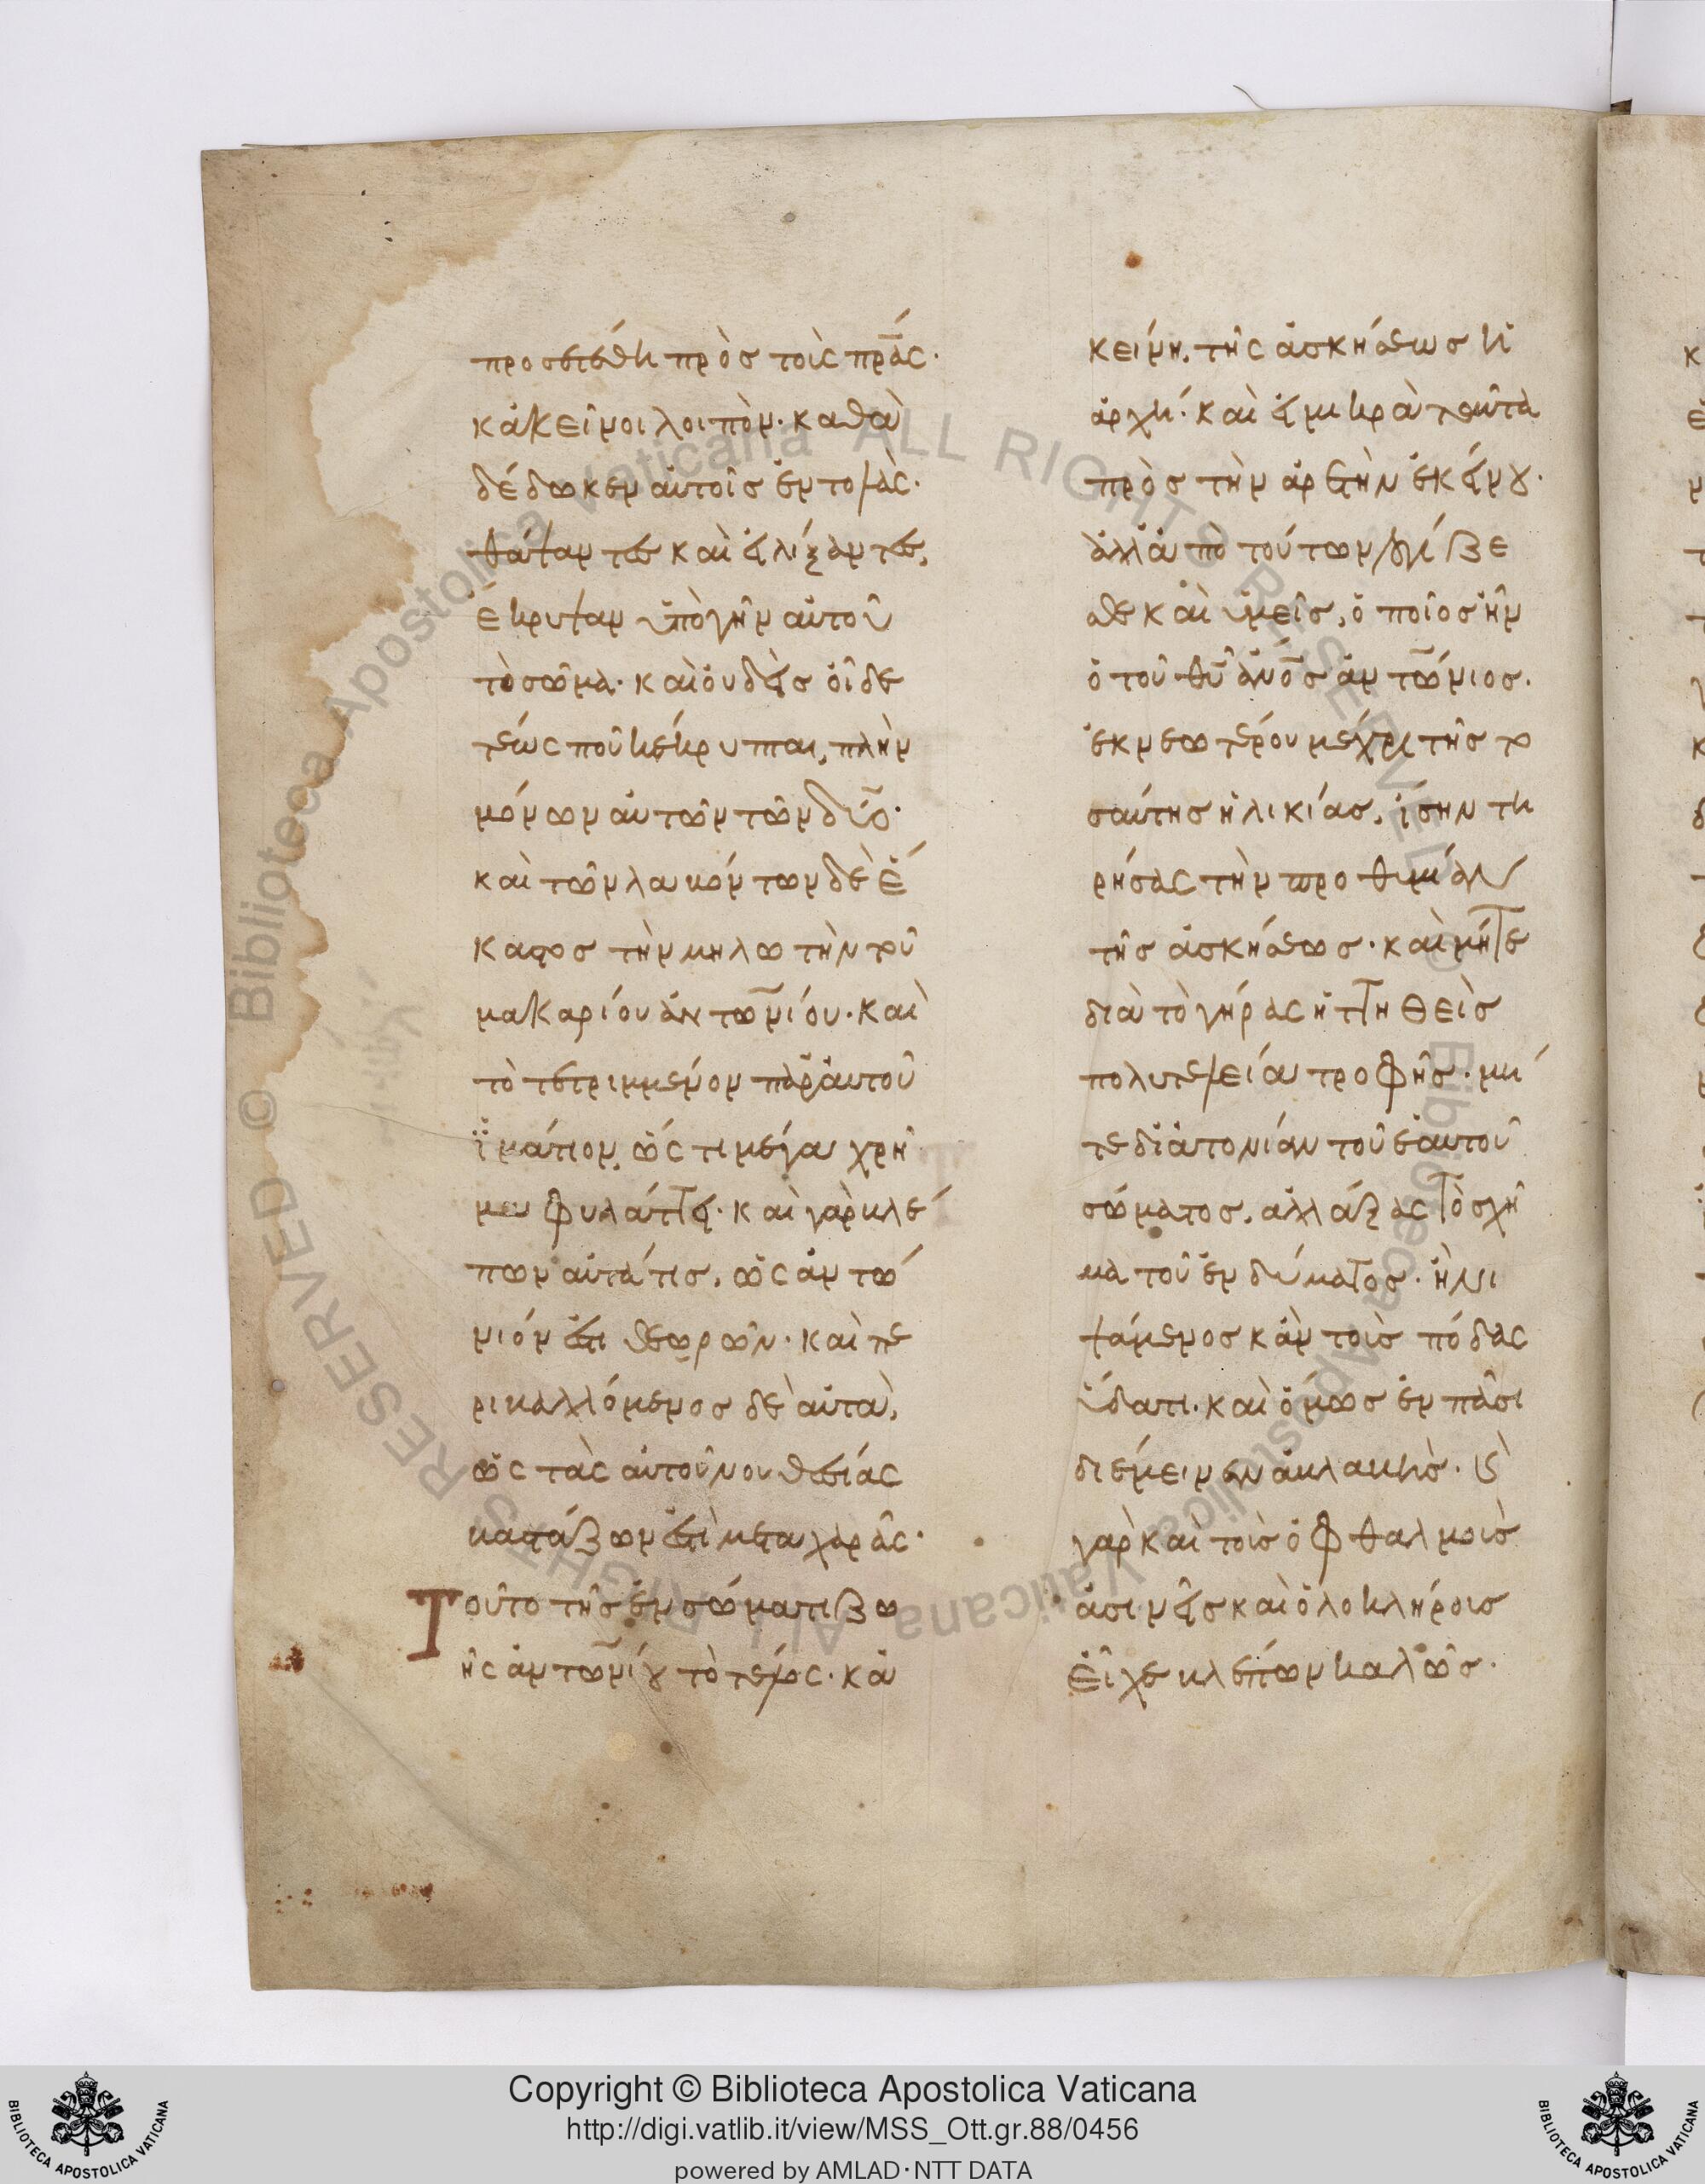 προσετέθη πρὸς τοὺς πρ̅ας·
κἀκεῖνοι λοιπὸν· καθὰ
δέδωκεν αὐτοῖς ἐντολὰς·
θάψαντες καὶ εἱλίξαντες,
ἔκρυψαν ὑπὸ γῆν αὐτοῦ
τὸ σῶμα· καὶ οὐδεὶς οἶδε
τέως ποῦ κέκρυπται, πλὴν
μόνων αὐτῶν τῶν δύο·
καὶ τῶν λαβόντων δὲ ἕ
καστος τὴν μηλωτὴν τοῦ
μακαρίου ἀντω̅νίου· καὶ
τὸ τετριμμένον παρ' αὐτοῦ
ἱμάτιον, ὥς τι μέγα χρῆ
μα φυλάττει· καὶ γὰρ βλέ
πων αὐτά τις, ὥς ἀντώ
νιόν ἐστι θεωρῶν· καὶ πε
ριβαλλόμενος δὲ αὐτὰ,
ὥς τὰς αὐτοῦ νουθεσίας
βαστάζων ἐστὶ μετὰ χαρᾶς·
Τοῦτο τῆς ἐν σώματι ζω
ῆς ἀντω̅νίου τὸ τέλος· κἀ
κείνη, τῆς ἀσκήσεως ἡ
ἀρχή· καὶ εἰ μικρὰ ταῦτα
πρὸς τὴν ἀρετὴν ἐκείνου·
ἀλλ' ἀπὸ τούτων λογίζε
σθε καὶ ὑμεῖς, ὁποῖος ἦν
ὁ τοῦ θ̅υ ἄν̅ο̅ς ἀντω̅νιος·
ἐκ νεωτέρου μέχρι τῆς το
σαύτης ἡλικίας, ἴσην τη
ρήσας τὴν προθυμίαν
τῆς ἀσκήσεως· καὶ μήτε
διὰ τὸ γήρας ἡττηθεὶς
πολυτελείᾳ τροφῆς· μή
τε δι' ἀτονίαν τοῦ ἑαυτοῦ
σώματος, ἀλλάξας τὸ σχῆ
μα τοῦ ἐνδύματος· ἢ νι
ψάμενος κἂν τοὺς πόδας
ὕδατι· καὶ ὅμως ἐν πᾶσι
διέμεινεν ἀβλαβὴς· καὶ
γὰρ καὶ τοὺς ὀφθαλμοὺς
ἀσινεῖς καὶ ὁλοκλήρους
εἶχε βλέπων καλῶς·
Copyright © Biblioteca Apostolica Vaticana
http://digi.vatlib.it/view/MSS_Ott.gr.88/0456
powered by AMLAD·NTT DATA